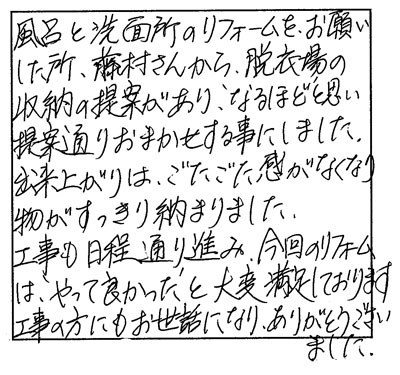 風呂と洗面所のリフォームを、お願い
した所、藤村さんから、脱衣場の
収納の提案があり、なるほどと思い
提案通りおまかせする事にしました。
出来上がりは、ごたごた感がなくなり
物がすっきり納まりました。
工事も日程通り進み、今回のリフォーム
は、やって良かった、と大変満足しております
工事の方にもお世話になり、ありがとうござい
ました。